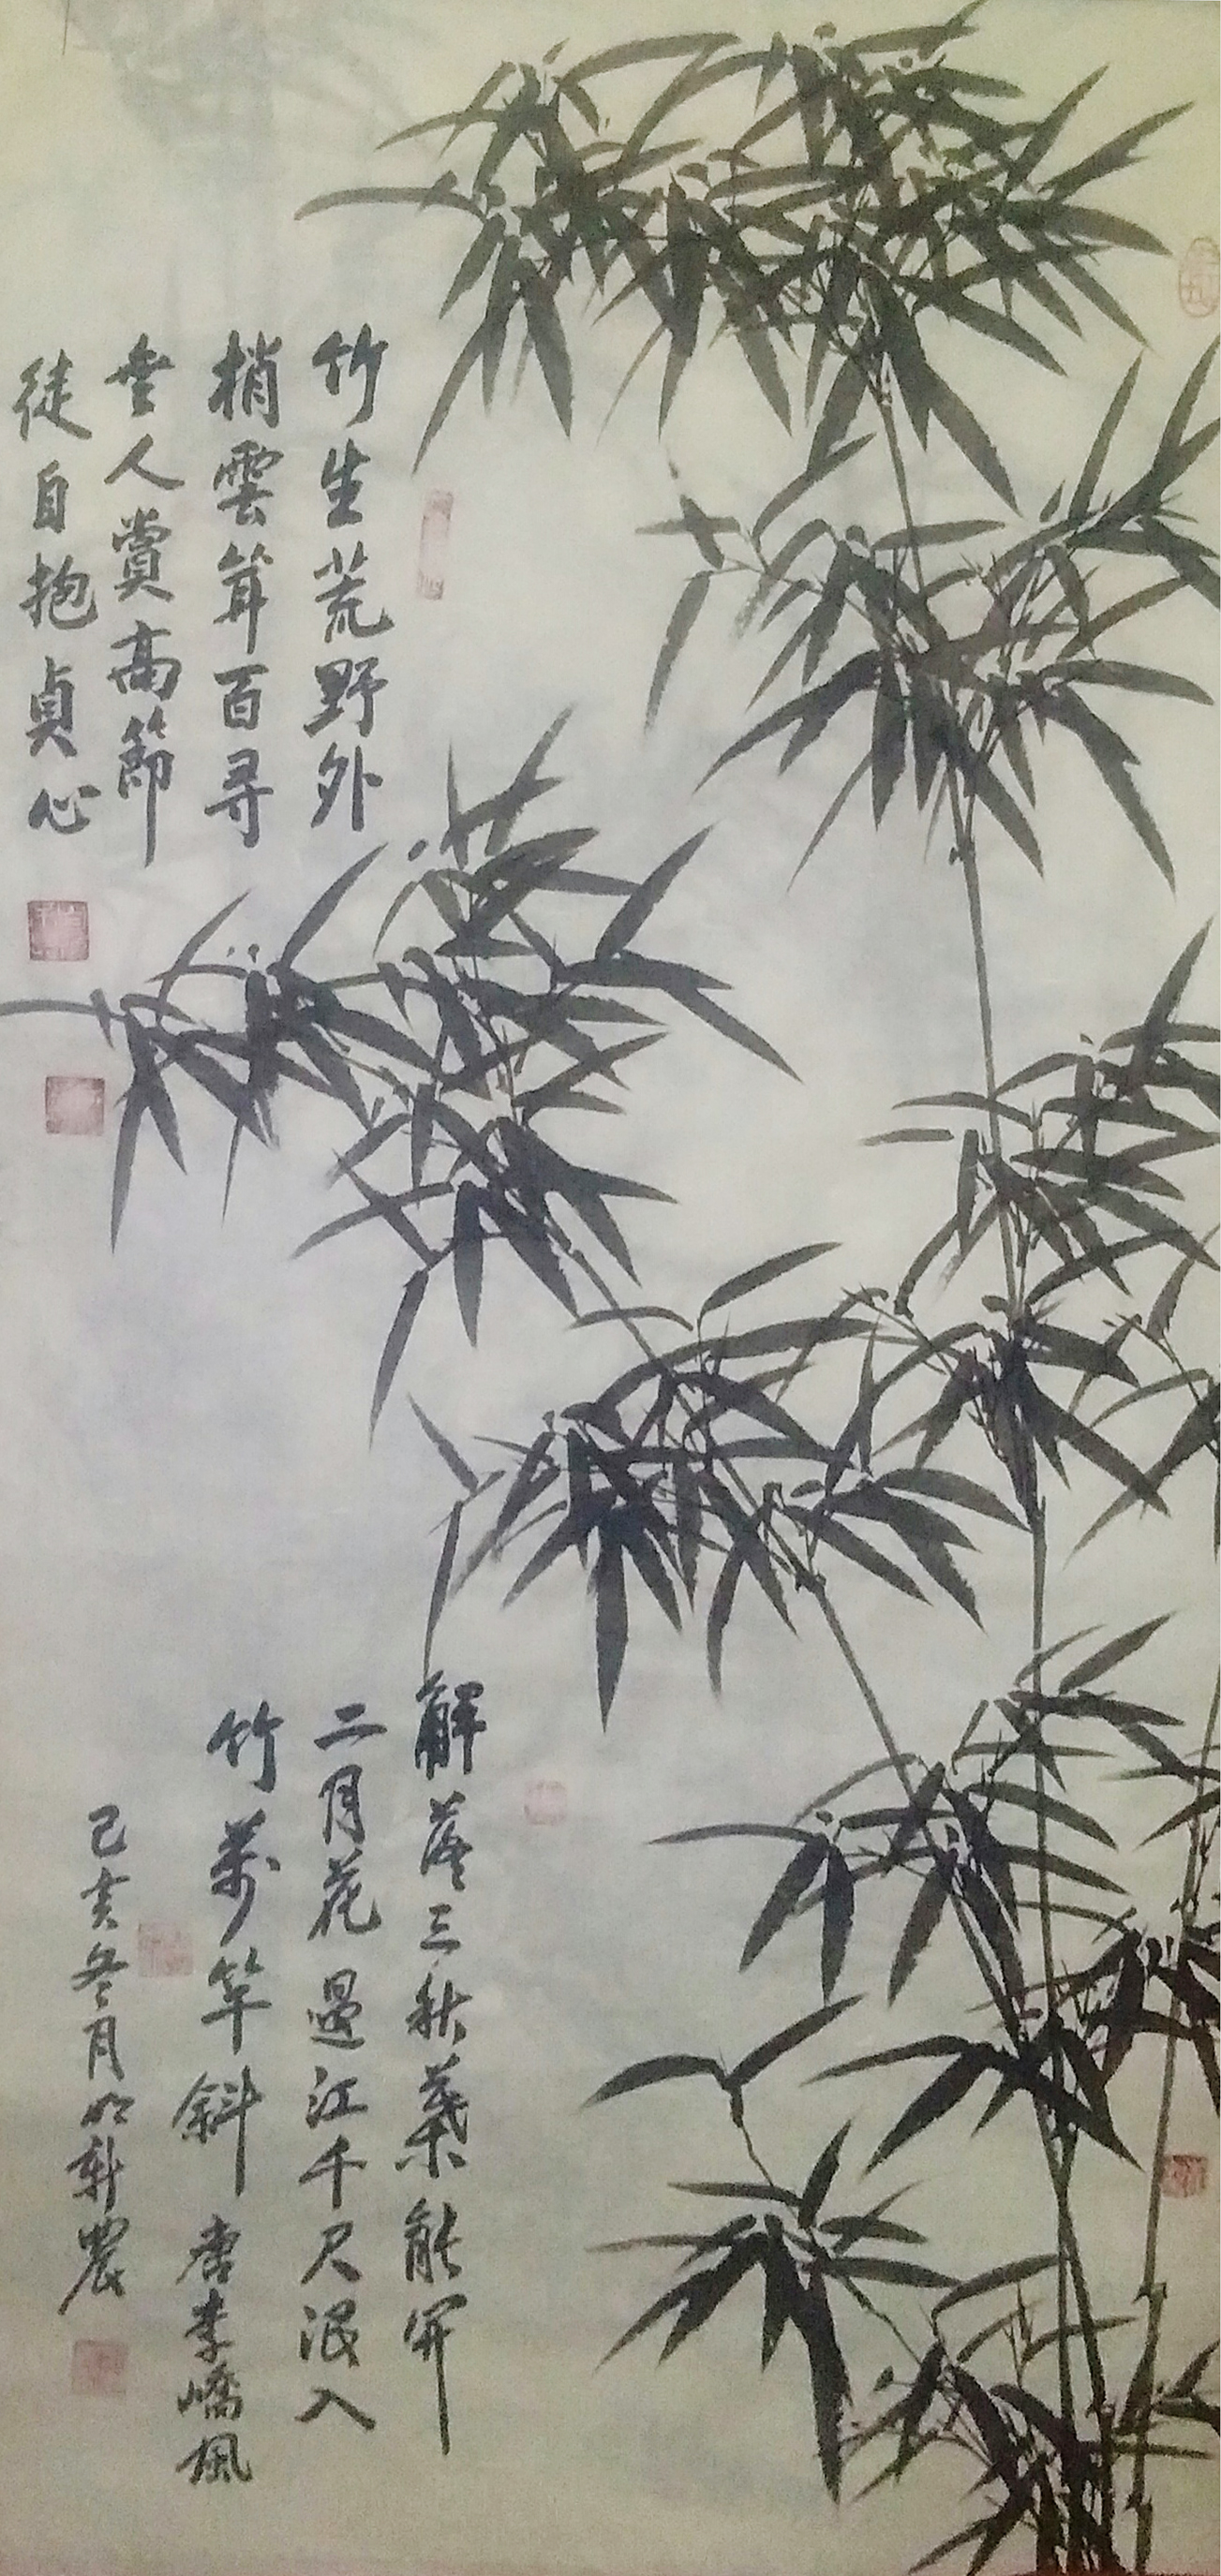 竹生荒野外
梢雲耸百寻
無人賞高節
徒自抱貞心
解落三秋葉能開
二月花過江千尺浪入
竹萬竿斜唐李嶠風
己亥冬月